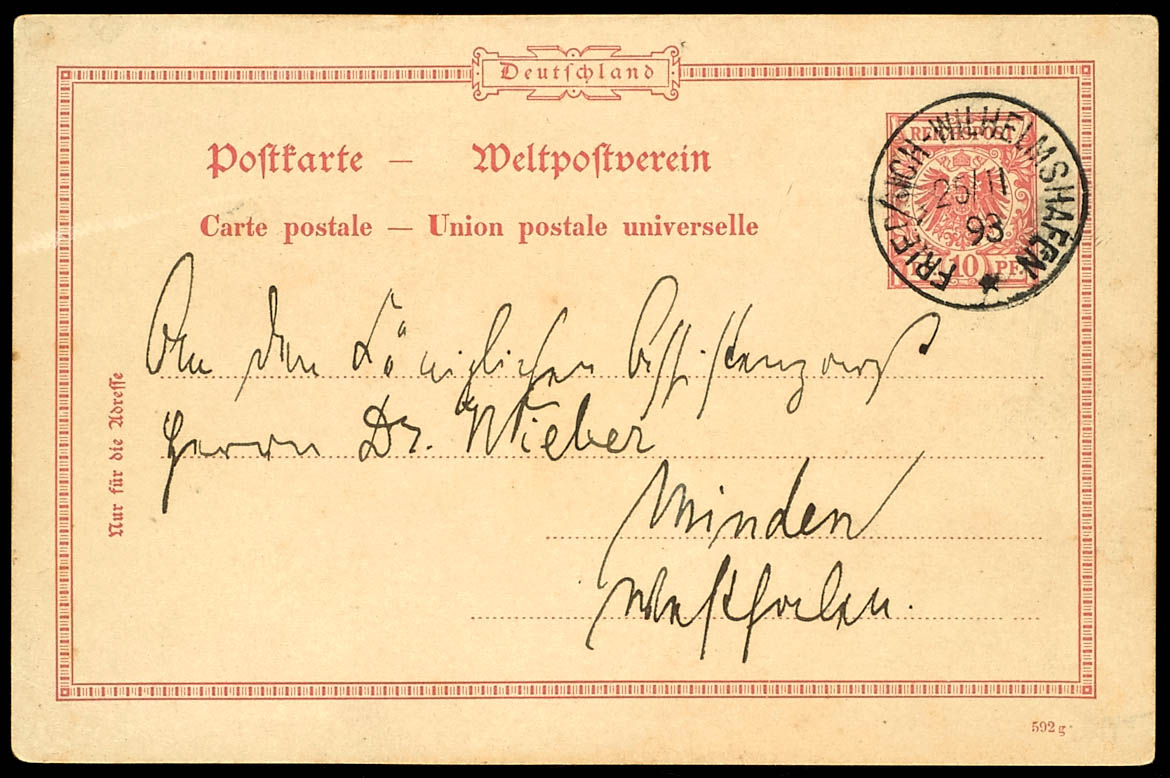 Deutschland
Postkarte — Weltpostverein
Carte postale — Union postale universelle
REICHSPOST
10 PF.
FRIEDRICH-WILHELMSHAFEN
25/11
93
An den Königlichen Assistenzarzt
Herrn Dr. Wieber
Minden
Westfalen.
Nur für die Adresse
592g